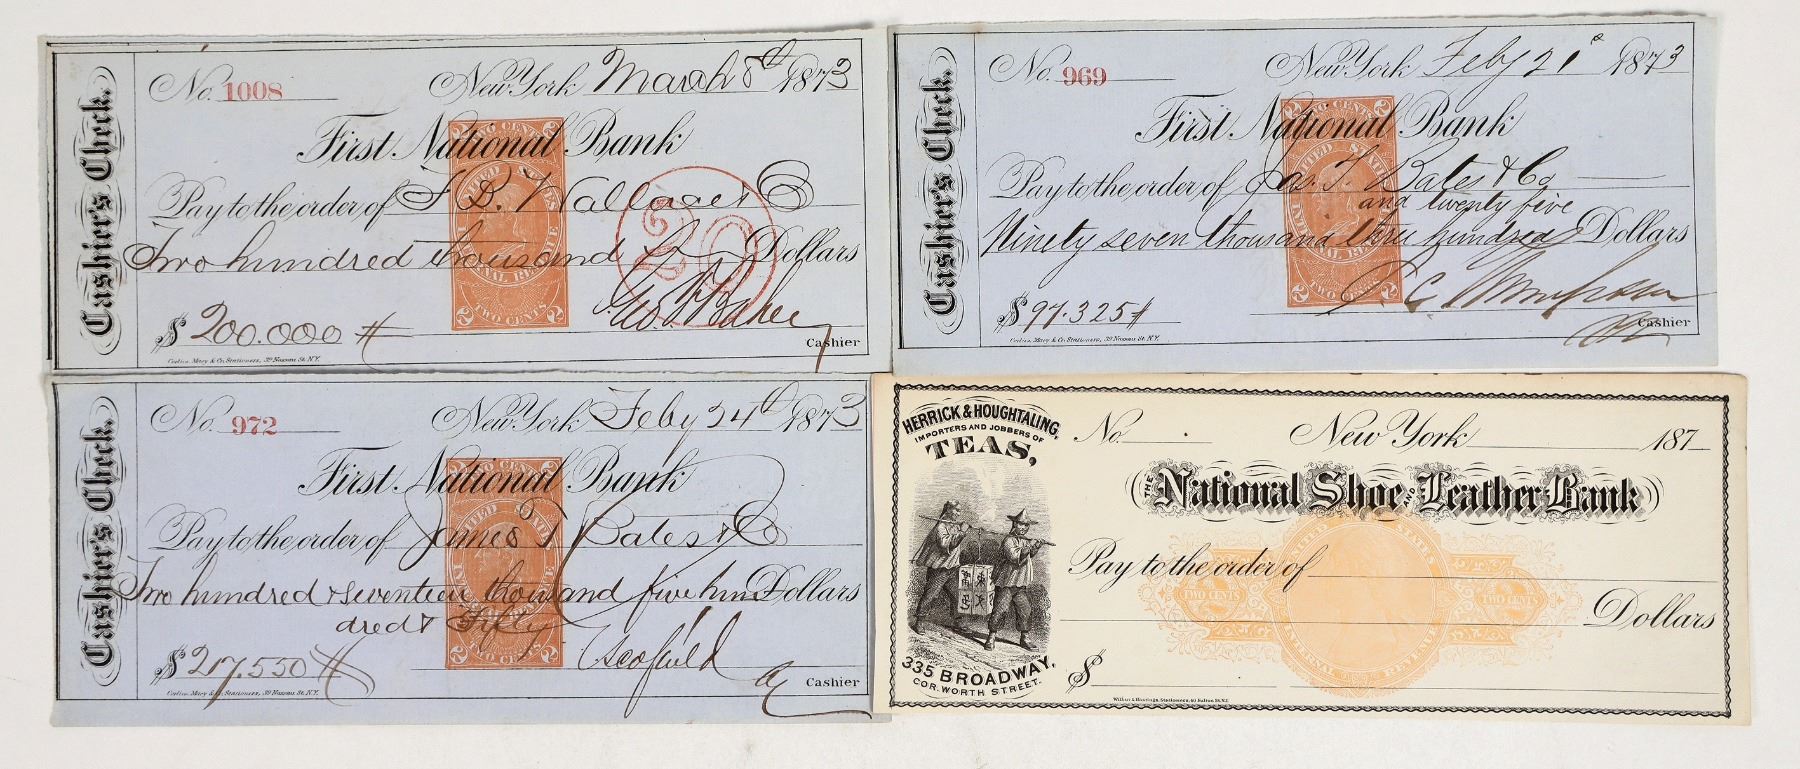 Cashier's Check.
No. 1008 New York March 8th 1873
TWO CENTS
First National Bank
UNITED STATES
Pay to the order of F. B. Wallace & Co
20
Two hundred thousand Dollars
INTERNAL REVENUE
TWO CENTS
2 2
$ 200.000 Geo F Baker
Cashier
39 Nassau St. N.Y.
Cashier's Check.
No. 969 New York Feby 21st 1873
2 TWO CENTS 2
First National Bank
UNITED STATES
Pay to the order of Jas. T. Bates & Co
and twenty five
Ninety seven thousand thru hundred Dollars
INTERNAL REVENUE
2 TWO CENTS 2
$ 97.325
Cashier
39 Nassau St. N.Y.
Cashier's Check.
No. 972 New York Feby 24th 1873
2 TWO CENTS 2
First National Bank
UNITED STATES
Pay to the order of James T Bates & Co
Two hundred & seventeen thousand five hun Dollars
dred & Fifty
INTERNAL REVENUE
2 TWO CENTS 2
$ 217.550 Scofield
Cashier
39 Nassau St. N.Y.
HERRICK & HOUGHTALING,
IMPORTERS AND JOBBERS OF
TEAS,
335 BROADWAY,
COR. WORTH STREET.
No. New York 187
THE National Shoe AND Leather Bank
UNITED STATES
Pay to the order of
TWO CENTS TWO CENTS
Dollars
INTERNAL REVENUE
$
Stationers, 60 Fulton St. N.Y.